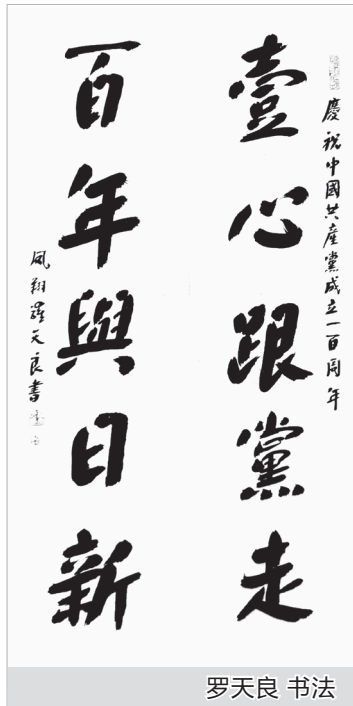 慶祝中國共産黨成立一百周年
壹心跟黨走
百年與日新
鳳翔羅天良書
罗天良 书法